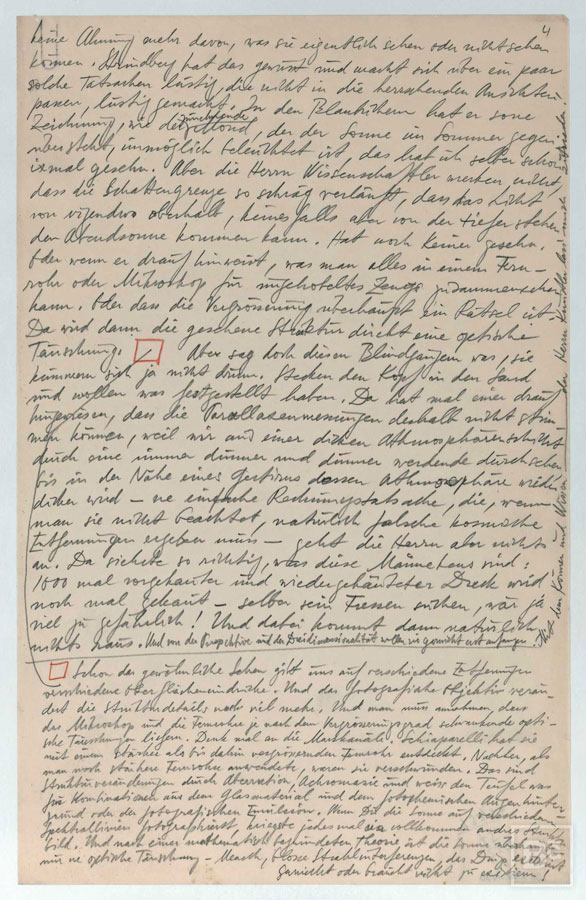 4
keine Ahnung mehr davon, was sie eigentlich sehen oder nicht sehen
können. Strindberg hat das gewusst und macht sich über ein paar
solche Tatsachen lustig, die nicht in die herrschenden Ansichten
passen, lustig gemacht. In den Blaubüchern hat er so ne
Zeichnung, wie der zunehmende Mond, der der Sonne im Sommer gegen-
übersteht, unmöglich beleuchtet ist, das hab ich selber schon
ixmal gesehn. Aber die Herrn Wissenschaftler merken nicht,
dass die Schattengrenze so schräg verläuft, dass das Licht
von irjendwo oberhalb, keinesfalls aber von der tiefer stehen-
den Abendsonne kommen kann. Hat noch keiner gesehn.
Oder wenn er drauf hinweist, was man alles in einem Fern-
rohr oder Mikroskop für ungehobeltes Zeugs zusammensehen
kann. Oder dass die Vergrösserung überhaupt ein Rätsel ist
Da wird dann die gesehene Struktur direkt eine optische
Täuschung. Aber sag doch diesen Blindgängern was, sie
kümmern sich ja nicht drum. Stecken den Kopf in den Sand
und wollen was festgestellt haben. Da hat mal einer drauf
hingewiesen, dass die Parallaxenmessungen deshalb nicht stim-
men können, weil wir aus einer dicken Athmosphärenschicht
durch eine immer dünner und dünner werdende durchsehen
bis in der Nähe eines Gestirns dessen Athmosphäre wieder
dicker wird – ne einfache Rechnungstatsache, die, wenn
man sie nicht beachtet, natürlich falsche kosmische
Entfernungen ergeben muss – geht die Herrn aber nichts
an. Da siehste so richtig, was diese Männekens sind:
1000 mal vorgekauter und wiedergekäuter Dreck wird
noch mal gekaut – selber sein Fressen suchen, wär ja
viel zu gefährlich! Und dabei kommt dann natürlich
nichts raus. Und von der Perspektive und der Dreidimensionalität wollen wir garnicht erst anfangen.
Schon das gewöhnliche Sehen gibt uns auf verschiedene Entfernungen
verschiedene Oberflächeneindrücke. Und das fotografische Objektiv verän-
dert die Strukturdetails noch viel mehr. Und man muss annehmen, dass
das Mikroskop und die Fernrohre je nach dem Vergrösserungsgrad schwankende opti-
sche Täuschungen liefern. Denk mal an die Marskanäle. Schiaparelli hat sie
mit einem stärker als bis dahin vergrössernden Fernrohr entdeckt. Nachher, als
man noch stärkere Fernrohre anwendete, waren sie verschwunden. Das sind
Strukturveränderungen durch Aberration, Achromasie und weiss der Teufel was
für Kombinationen aus dem Glasmaterial und dem fotochemischen Augenhinter-
grund oder der fotografischen Emulsion. Wenn Du die Sonne auf verschiedene
Spektrallinien fotografierst, kriegste jedesmal ein vollkommen andres Struktur-
bild. Und nach einer mathematisch begründeten Theorie ist die Sonne überhaupt
nur ne optische Täuschung – Mensch, blosse Strahleninterferenzen, das Ding
garnicht oder braucht nicht zu existieren!